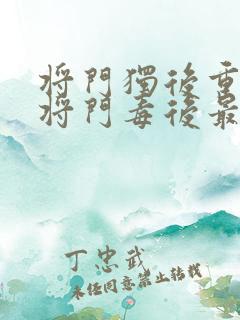 将門獨後重
将門毒後最
丁忠武
未经同意禁止转载